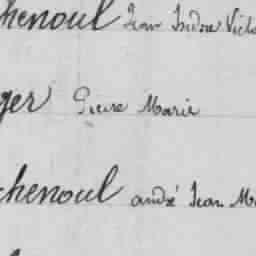 chenoul Jean Isidore Victo
ger Pierre Marie
chenoul andré Jean Ma